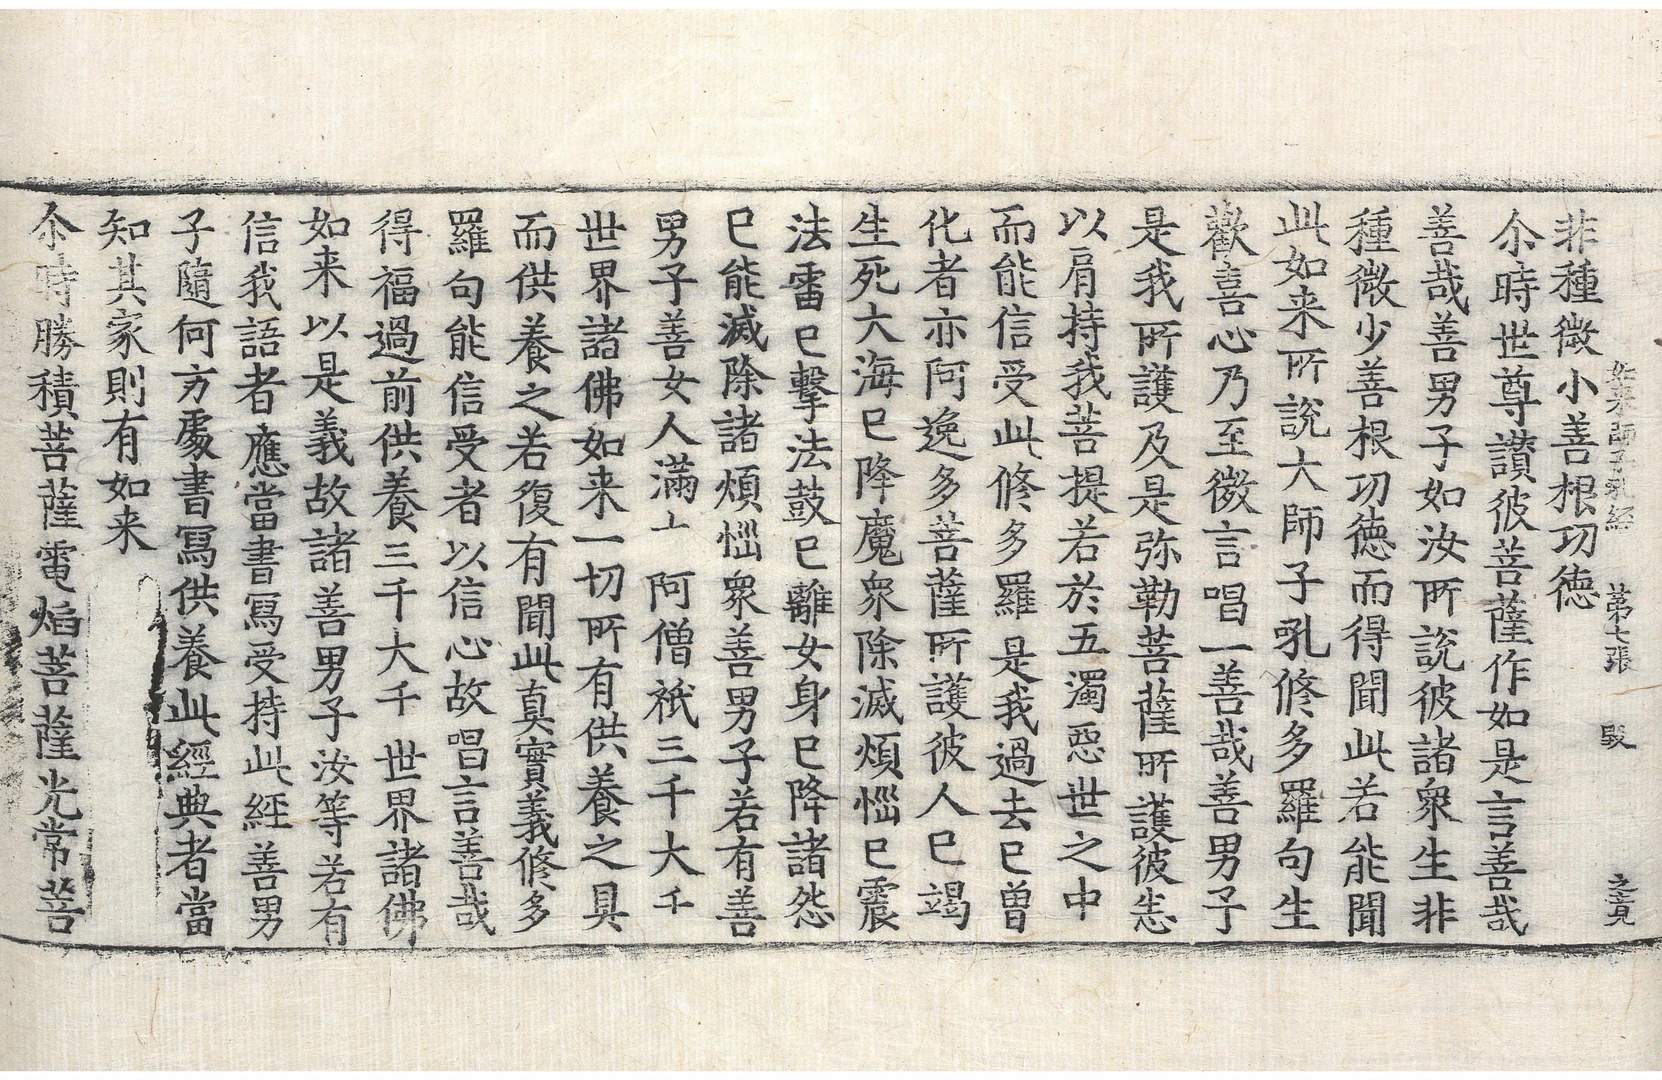 如来師子吼経 第七張 毀 之見
非種微小善根功徳
尒時世尊讃彼菩薩作如是言善哉
善哉善男子如汝所說彼諸衆生非
種微少善根功徳而得聞此若能聞
此如来所說大師子吼修多羅句生
歡喜心乃至微言唱一善哉善男子
是我所護及是弥勒菩薩所護彼𢘑
以肩持我菩提若於五濁惡世之中
而能信受此修多羅是我過去已曾
化者亦阿逸多菩薩所護彼人已竭
生死大海已降魔衆除滅煩惱已震
法雷已擊法鼓已離女身已降諸怨
已能滅除諸煩惱衆善男子若有善
男子善女人滿一阿僧祇三千大千
世界諸佛如来一切所有供養之具
而供養之若復有聞此真實義修多
羅句能信受者以信心故唱言善哉
得福過前供養三千大千世界諸佛
如来以是義故諸善男子汝等若有
信我語者應當書寫受持此經善男
子隨何方處書寫供養此經典者當
知其家則有如来
尒時勝積菩薩電焰菩薩光常菩